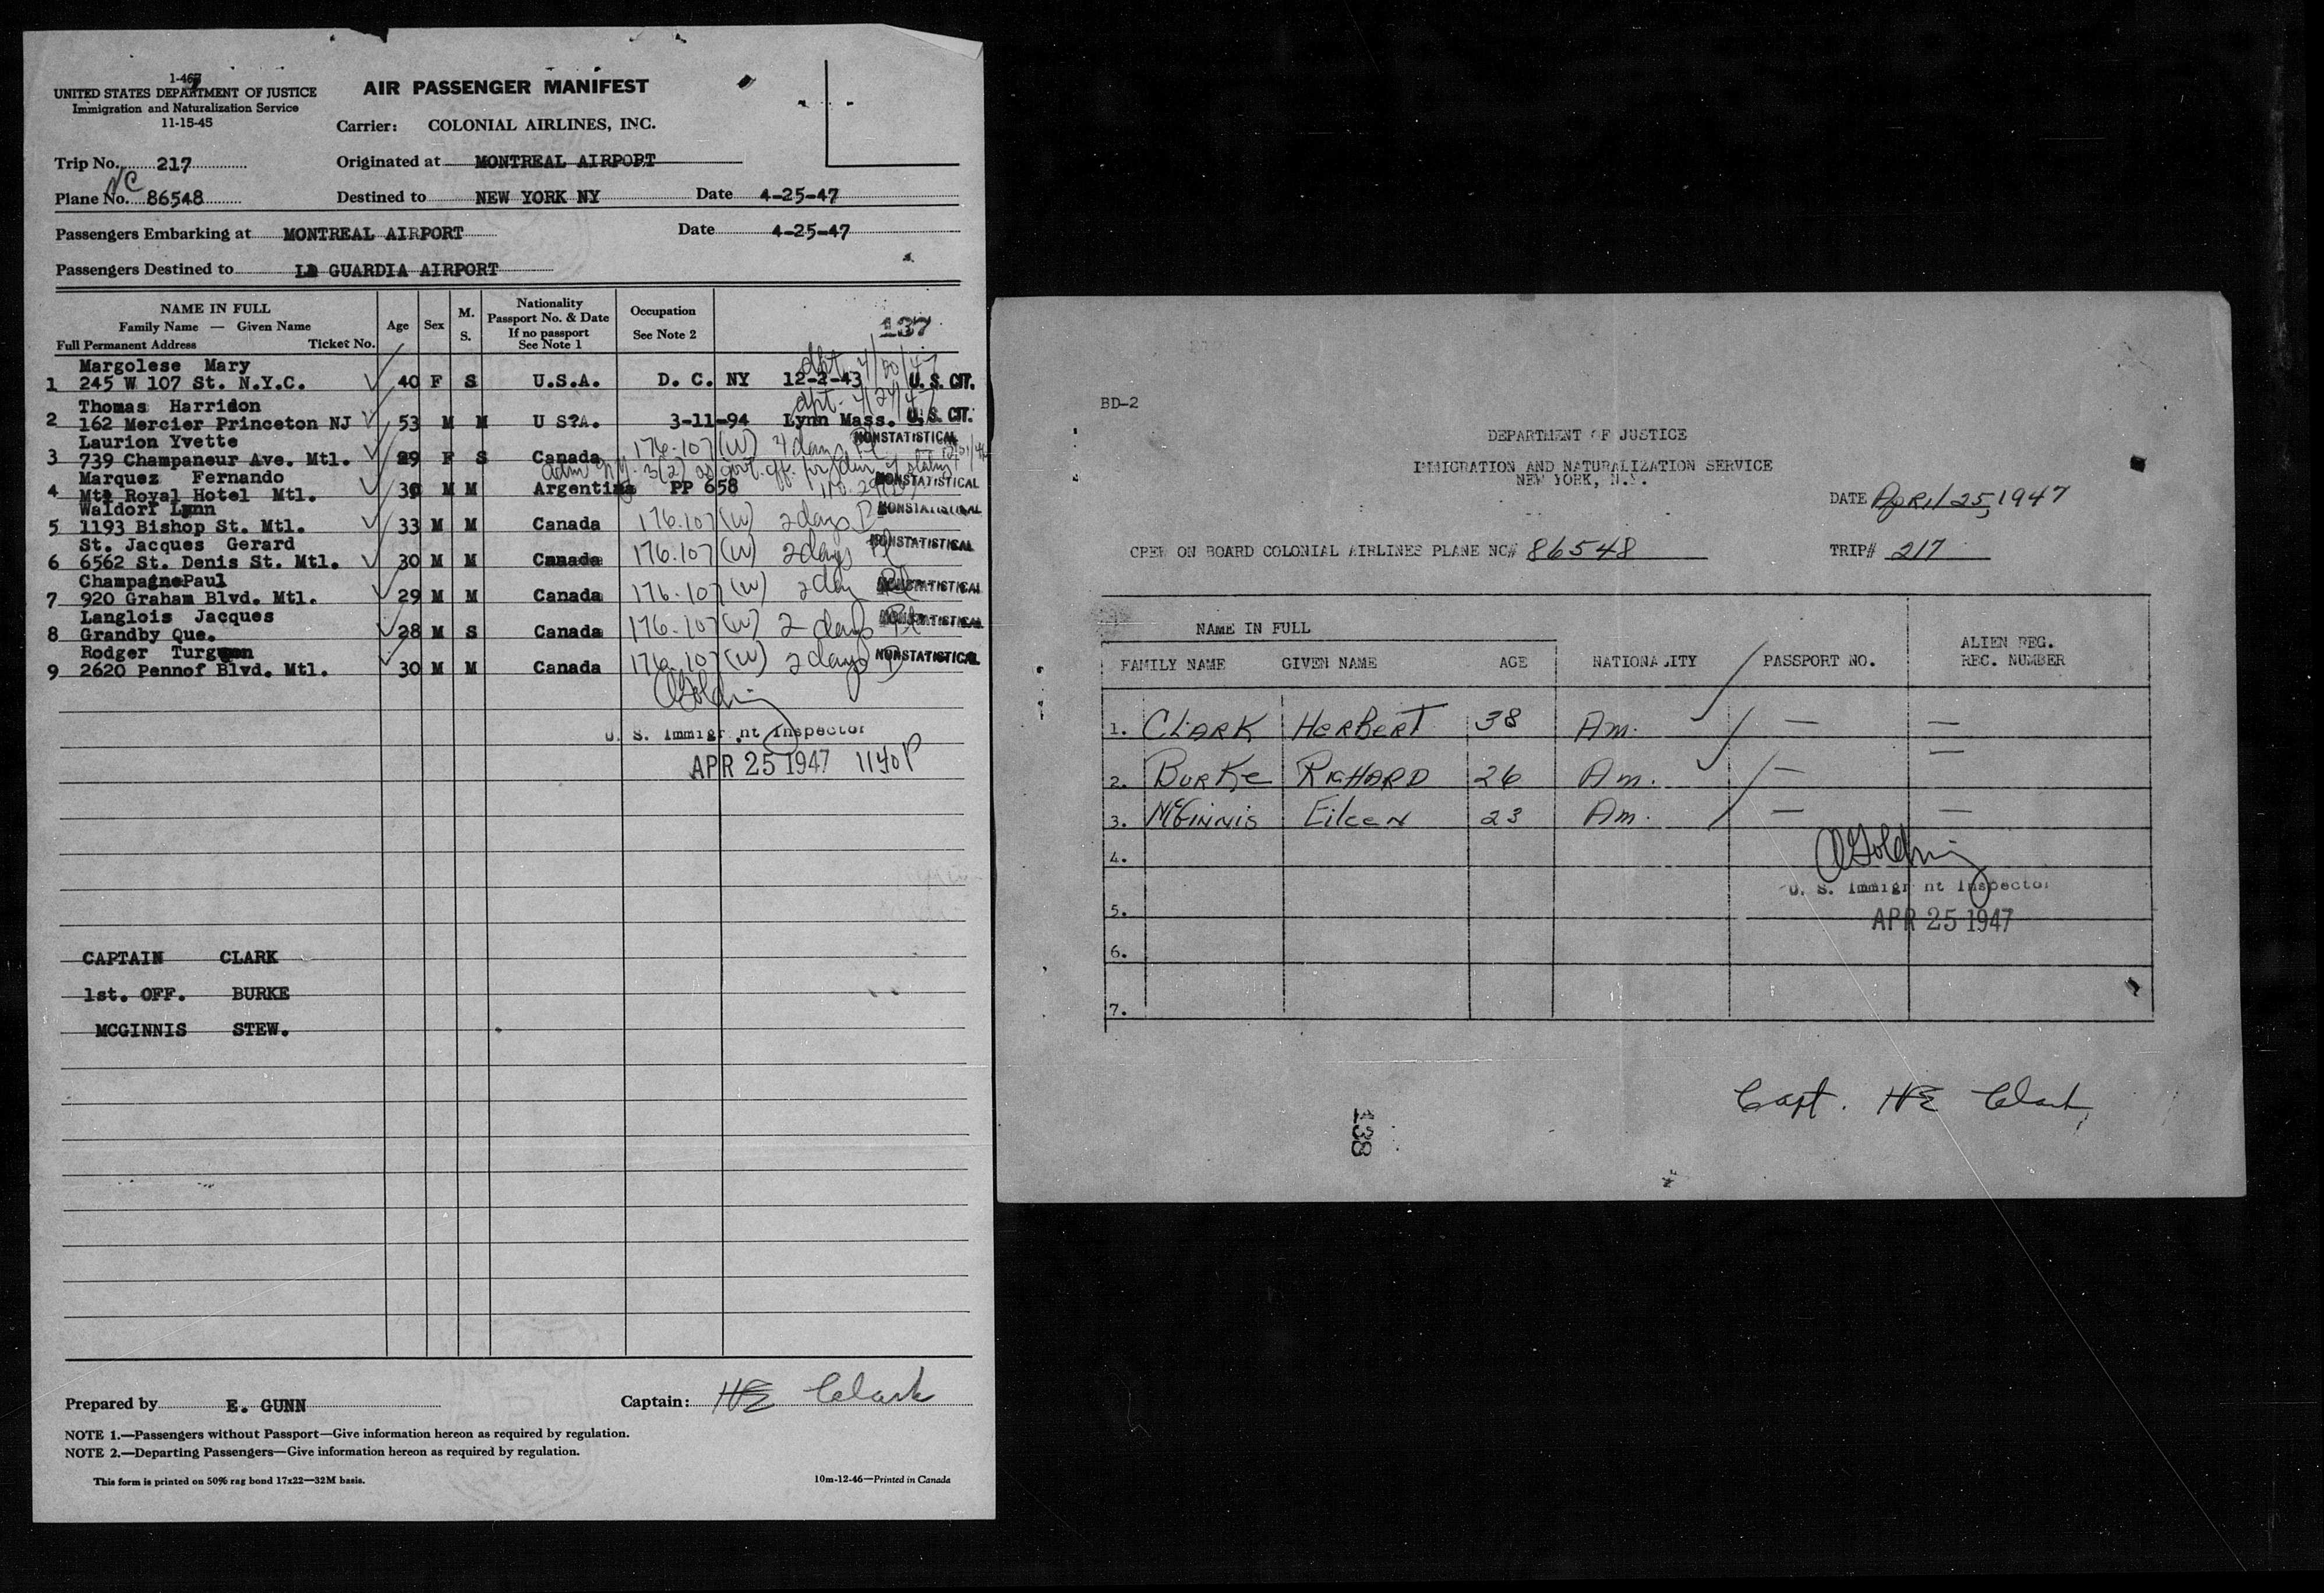 1-467
UNITED STATES DEPARTMENT OF JUSTICE
Immigration and Naturalization Service
11-15-45
AIR PASSENGER MANIFEST
Carrier: COLONIAL AIRLINES, INC.
Trip No. 217
Originated at MONTREAL AIRPORT
NC
Plane No. 86548
Destined to NEW YORK NY Date 4-25-47
Passengers Embarking at MONTREAL AIRPORT Date 4-25-47
Passengers Destined to LA GUARDIA AIRPORT
NAME IN FULL
Family Name — Given Name
Full Permanent Address Ticket No.
Age Sex M. S.
Nationality
Passport No. & Date
If no passport
See Note 1
Occupation
See Note 2
137
Margolese Mary dpt. 4/20/47
1 245 W 107 St. N.Y.C. 40 F S U.S.A. D. C. NY 12-2-43 U.S. CIT.
Thomas Harridon dpt. 4/24/47
2 162 Mercier Princeton NJ 53 M M U S?A. 3-11-94 Lynn Mass. U.S. CIT.
Laurion Yvette 176.107 (W) 4 days NONSTATISTICAL
3 739 Champaneur Ave. Mtl. 29 F S Canada
Marquez Fernando adm. N.Y. 3(2) as govt. off. for dur. of status
4 Mt. Royal Hotel Mtl. M M Argentina PP 658 NONSTATISTICAL
Waldorf Lynn
5 1193 Bishop St. Mtl. 33 M M Canada 176.107 (W) 2 days NONSTATISTICAL
St. Jacques Gerard
6 6562 St. Denis St. Mtl. 30 M M Canada 176.107 (W) 2 days NONSTATISTICAL
ChampagnePaul
7 920 Graham Blvd. Mtl. 29 M M Canada 176.107 (W) 2 day NONSTATISTICAL
Langlois Jacques
8 Grandby Que. 28 M S Canada 176.107 (W) 2 days NONSTATISTICAL
Rodger Turgeon
9 2620 Pennof Blvd. Mtl. 30 M M Canada 176.107 (W) 2 days NONSTATISTICAL
U. S. Immigr nt Inspector
APR 25 1947 1140P
CAPTAIN CLARK
1st. OFF. BURKE
MCGINNIS STEW.
Prepared by E. GUNN
Captain: HE Clark
NOTE 1.—Passengers without Passport—Give information hereon as required by regulation.
NOTE 2.—Departing Passengers—Give information hereon as required by regulation.
This form is printed on 50% rag bond 17x22—32M basis.
10m-12-46—Printed in Canada
BD-2
DEPARTMENT OF JUSTICE
IMMIGRATION AND NATURALIZATION SERVICE
NEW YORK, N.Y.
DATE April 25, 1947
CREW ON BOARD COLONIAL AIRLINES PLANE NC# 86548 TRIP# 217
NAME IN FULL
FAMILY NAME GIVEN NAME AGE NATIONALITY PASSPORT NO.
ALIEN REG.
REC. NUMBER
1. CLARK HERBERT 38 Am. — —
2. BURKE RICHARD 26 Am. — —
3. McGINNIS EilEEN 23 Am. — —
4.
U. S. Immigr nt Inspector
5.
APR 25 1947
6.
7.
Capt. HE Clark
138